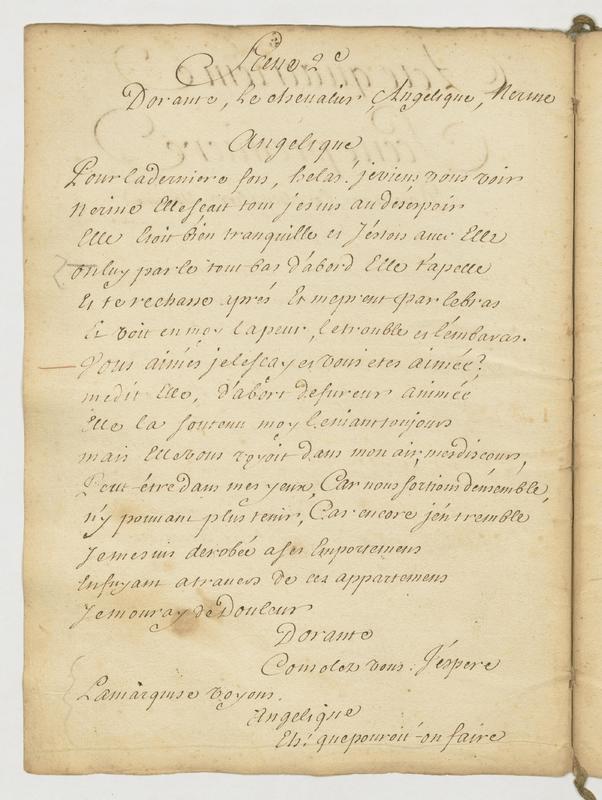 Scene 2e
Dorante, Le chevalier Angelique, Nerine
Angelique
Pour la derniere fois, helas! je viens vous voir
Nerine Elle scait tout je suis au desespoir
Elle Etoit bien tranquille et J'étois avec Elle
on luy parle tout bas d'abord Elle t'apelle
Et te rechasse aprés Et me prent par le bras
Et voit en moy la peur, le trouble et l'embaras.
Vous aimés je le scay et vous etes aimée?
me dit Elle, d'abort de fureur animée
Elle la soutenu moy leniant toujours
mais Elle vous voyoit dans mon air, mes discours,
Peut-étre dans mes yeux, Car nous sortions d'ensemble,
n'y pouvant plus tenir, Car encore j'en tremble
Je me suis derobée a ses Emportemens
Enfuyant a travers de ces appartemens
Je mouray de Douleur
Dorante
Consolez vous. J'éspere
La marquise voyons.
Angelique
Eh! que pouroit-on faire